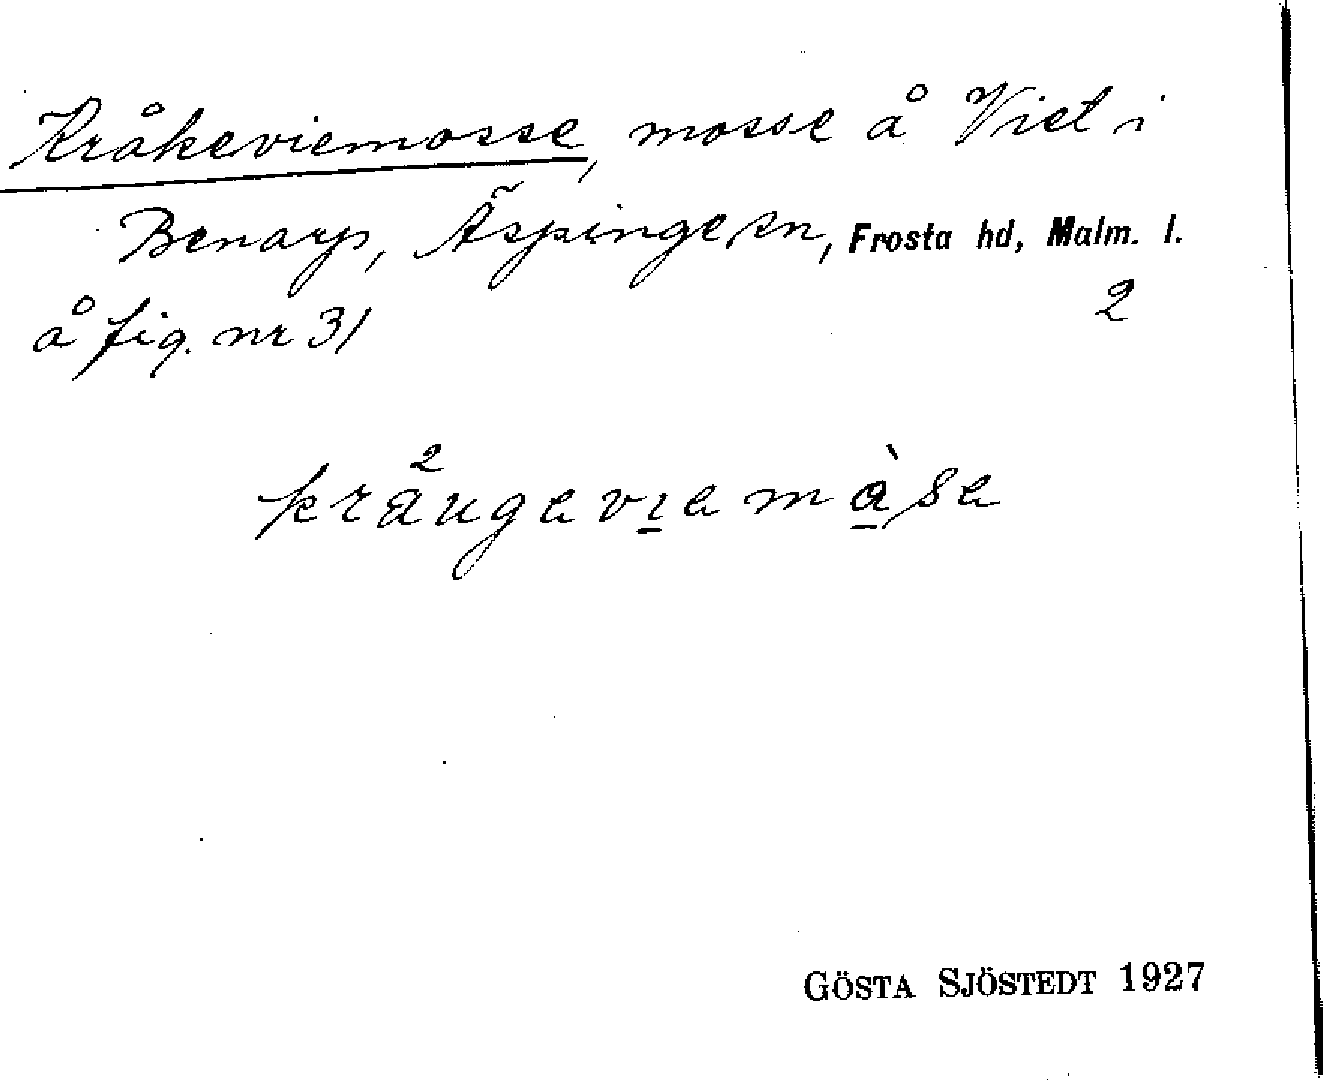 Kråkeviemosse, mosse å Viet i
Benarp, Äspinge sn, Frosta hd, Malm. l.
å fig. nr 31 2
GÖSTA SJÖSTEDT 1927